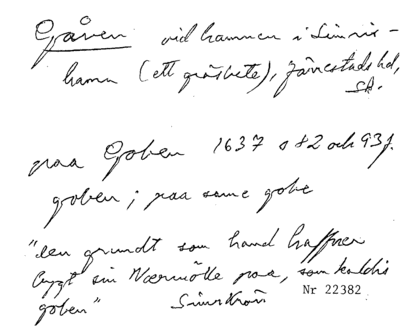 Gåven vid hamnen i Simris-
hamn (ett gräsbete), Järrestads hd,
Sk.
paa Goben 1637 s 82 och 93 f.
goben; paa same gobe
"den grundt som hand haffuer
bygt sin Wærmölle paa, som kaldis
goben"
Nr 22382